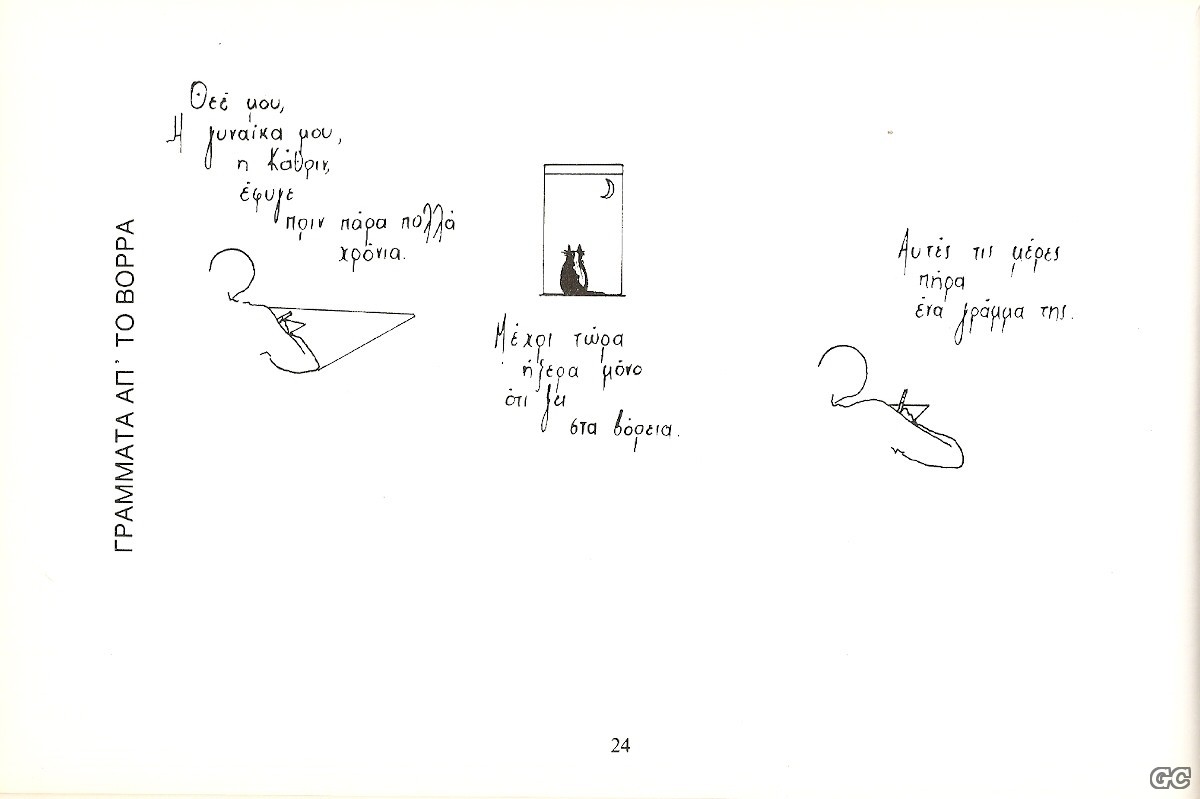 ΓΡΑΜΜΑΤΑ ΑΠ' ΤΟ ΒΟΡΡΑ
Θεέ μου,
Η γυναίκα μου,
η Κάθριν,
έφυγε
πριν πάρα πολλά
χρόνια.
Μέχρι τώρα
ήξερα μόνο
ότι ζει
στα βόρεια.
Αυτές τις μέρες
πήρα
ένα γράμμα της.
24
GC